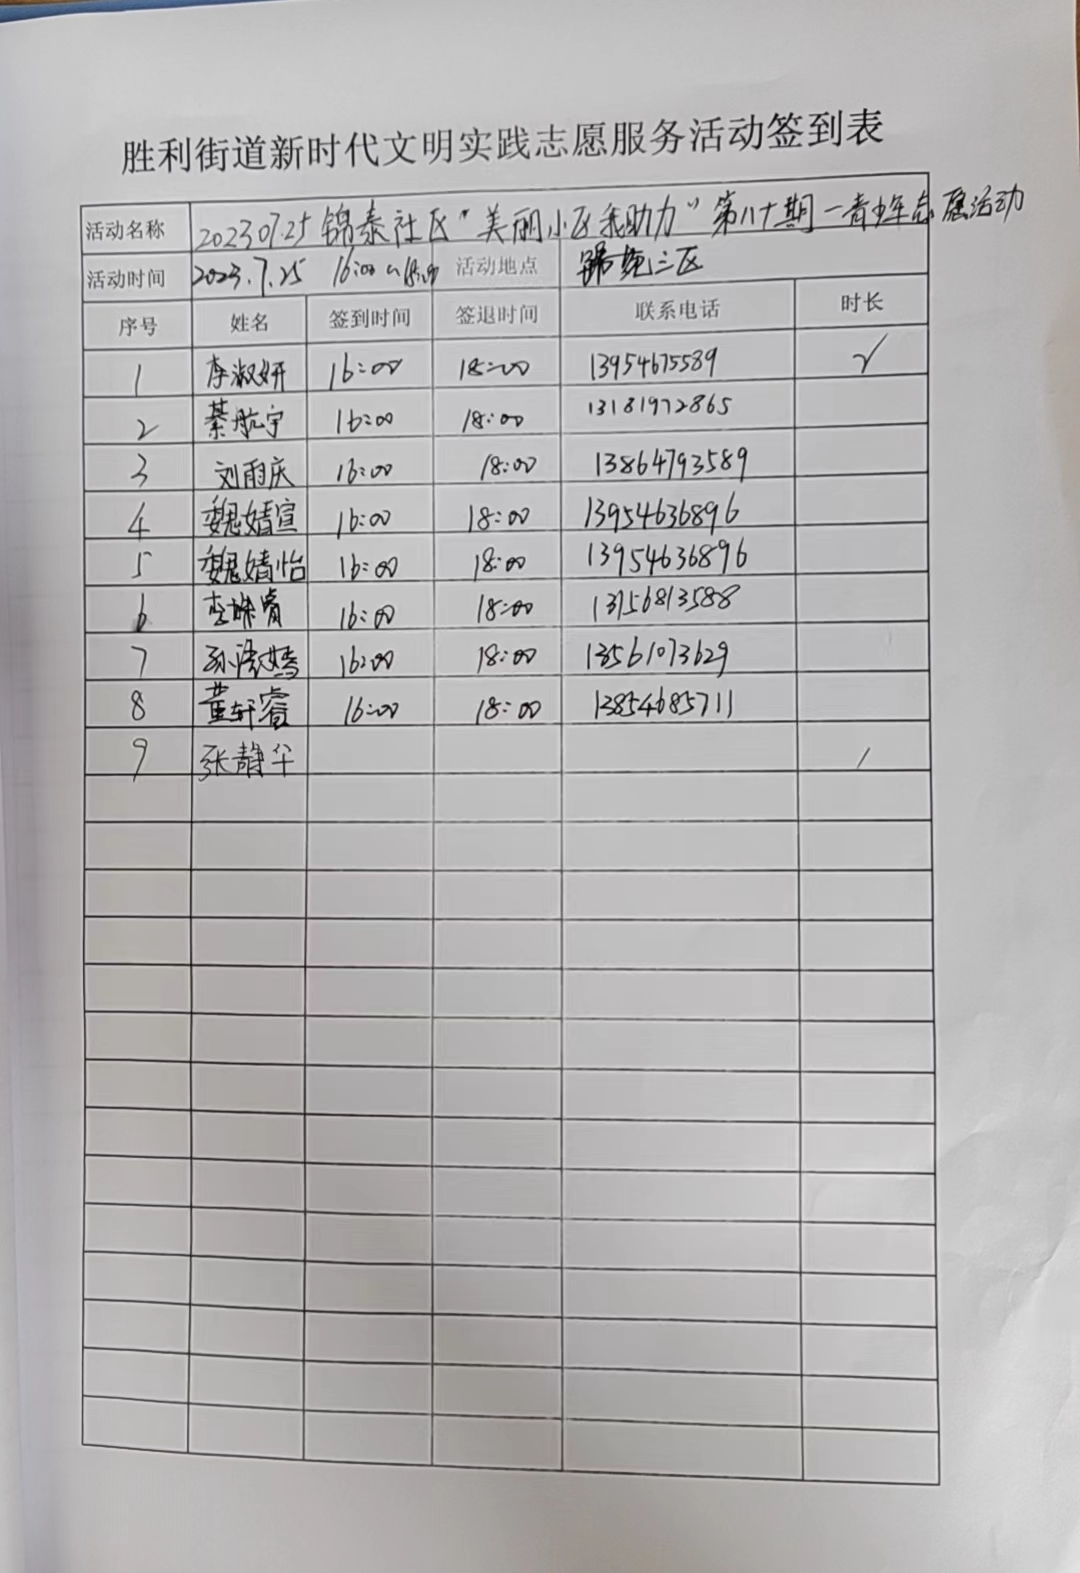 胜利街道新时代文明实践志愿服务活动签到表
活动名称 20230725 锦泰社区“美丽小区我助力”第八十期—青少年志愿活动
活动时间 2023.7.25 16:00~18:00 活动地点 锦苑三区
序号 姓名 签到时间 签退时间 联系电话 时长
1 李淑妍 16:00 18:00 13954675589 √
2 綦航宇 16:00 18:00 13181972865
3 刘雨庆 16:00 18:00 13864793589
4 魏婧宣 16:00 18:00 13954636896
5 魏婧怡 16:00 18:00 13954636896
6 16:00 18:00 13156813588
7 16:00 18:00 13561073629
8 董轩睿 16:00 18:00 13854685711
9 张静华 /